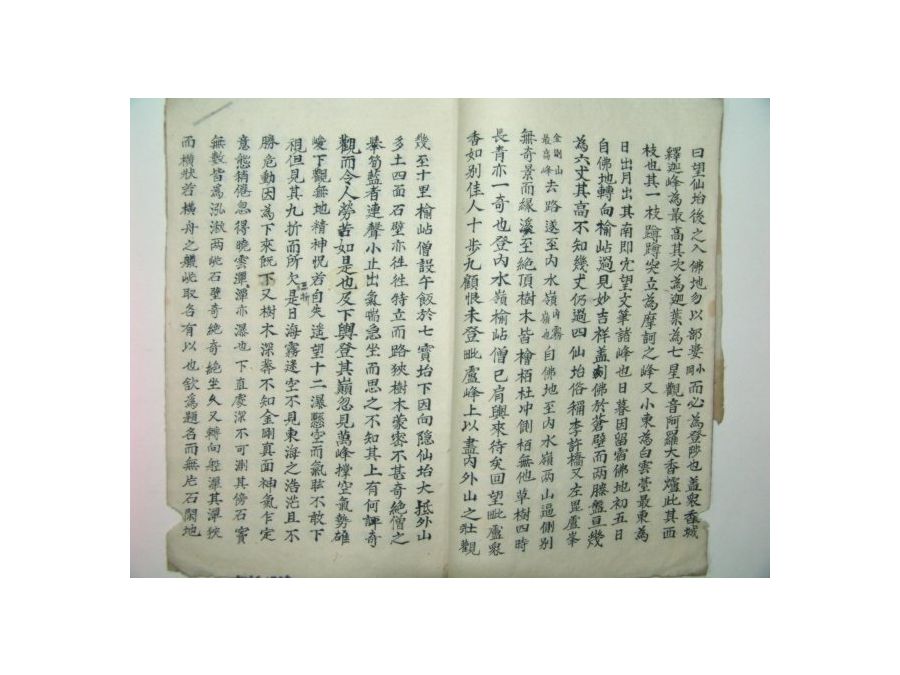 曰望仙坮後之入佛地勿以部婁小岡而必為登陟也盖衆香城
釋迦峰為最高其次為迦葉為七星觀音阿羅大香爐此其西
枝也其一枝蹲蹲突立為摩訶之峰又小東為白雲臺最東為
日出月出其南即宂望文筆諸峰也日暮因留宿佛地初五日
自佛地轉向榆岾過見妙吉祥盖刻佛於蒼壁而兩膝盤亘幾
為六丈其高不知幾丈仍過四仙坮俗稱李許橋又左毘盧峯
金剛山最高峰去路遂至內水嶺內霧嶺也自佛地至內水嶺兩山逼側別
無奇景而緣溪至絶頂樹木皆檜栢杜冲側栢無他草樹四時
長青亦一奇也登內水嶺榆岾僧已肩輿來待矣回望毗盧衆
香如別佳人十步九顧恨未登毗盧峰上以盡內外山之壯觀
幾至十里榆岾僧設午飯於七寶坮下因向隱仙坮大抵外山
多土四面石壁亦徃徃特立而路狹樹木蒙密不甚奇絶僧之
舉筍藍者連聲小止出氣喘急坐而思之不知其上有何評奇
觀而令人勞苦如是也及下輿登其巔忽見萬峰撑空氣勢雄
嵕下觀無地精神怳若自失遥望十二瀑懸空而氣眩不敢下
視但見其九折而所欠是日海霧迷空不見東海之浩茫且不
勝危動因為下來旣下又樹木深莽不知金剛真面神氣乍定
意態稍倦忽得曉雲潭潭亦瀑也下直處深不可測其傍石竇
無數皆為泓湫兩岾石壁奇絶奇絶坐久又轉向船潭其潭狹
而橫狀若橫舟之艤岾取名有以也欲為題名而無片石闕地